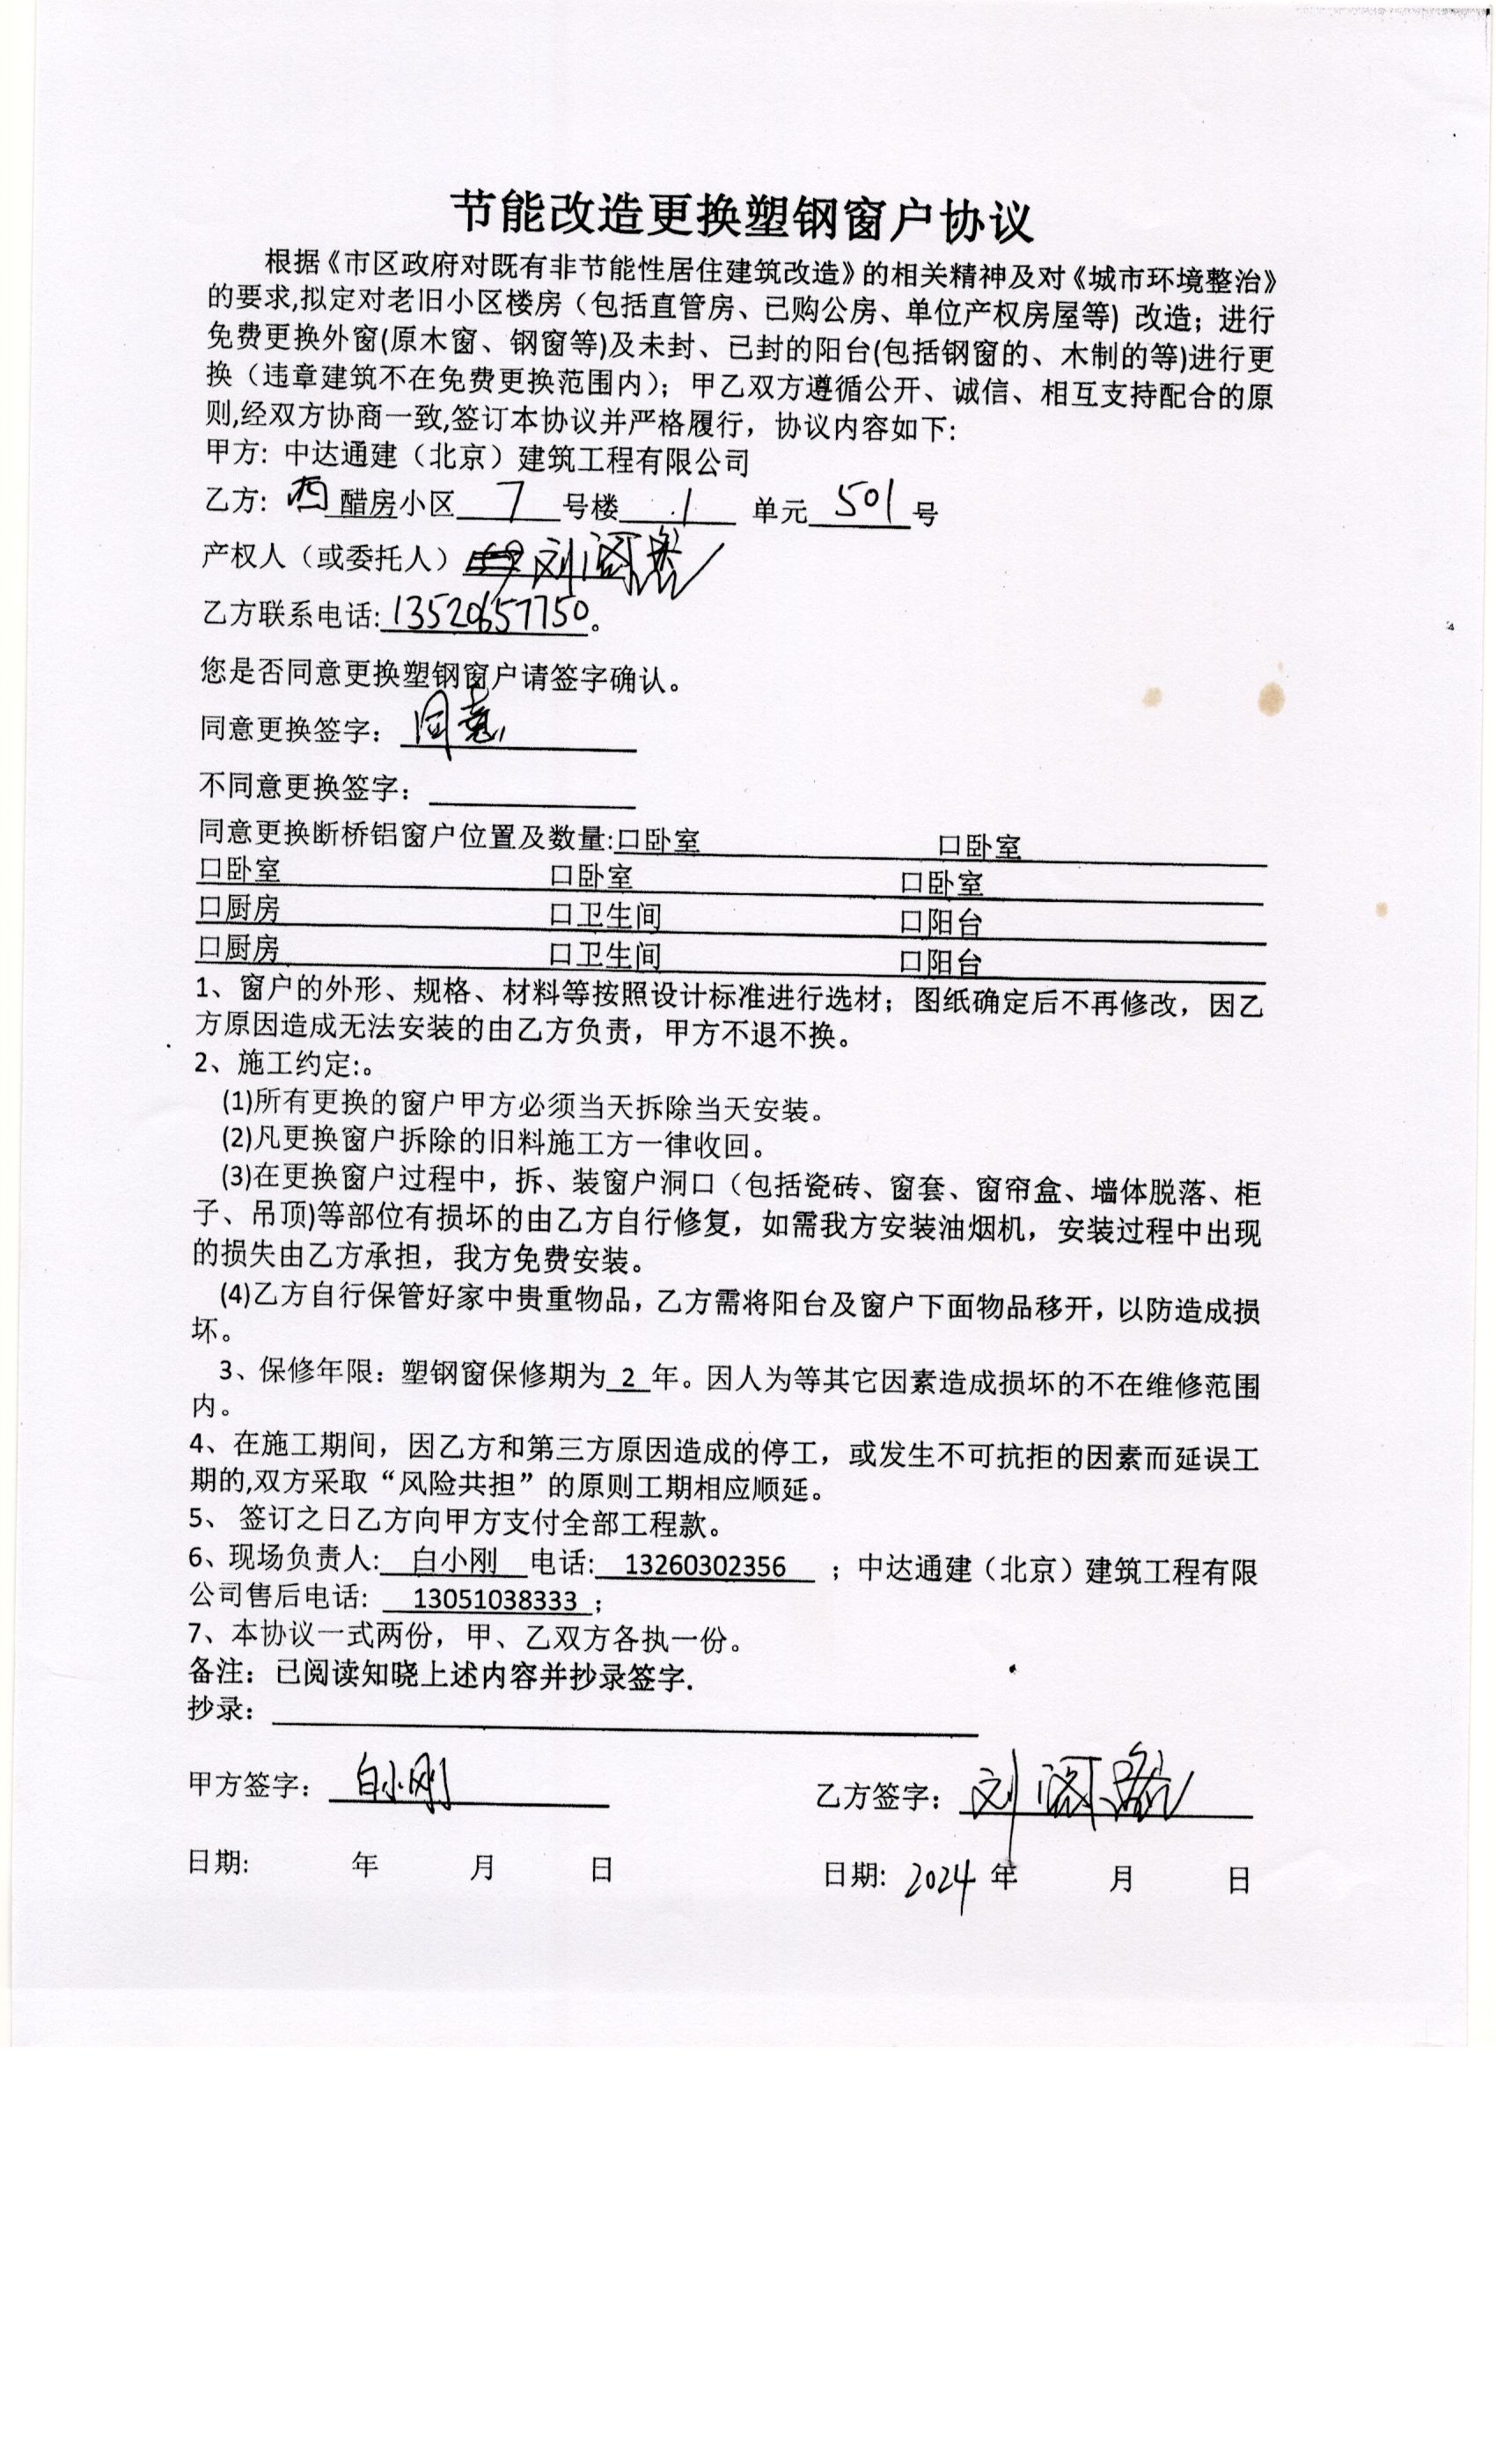 节能改造更换塑钢窗户协议
根据《市区政府对既有非节能性居住建筑改造》的相关精神及对《城市环境整治》
的要求,拟定对老旧小区楼房（包括直管房、已购公房、单位产权房屋等）改造；进行
免费更换外窗(原木窗、钢窗等)及未封、已封的阳台(包括钢窗的、木制的等)进行更
换（违章建筑不在免费更换范围内）；甲乙双方遵循公开、诚信、相互支持配合的原
则,经双方协商一致,签订本协议并严格履行，协议内容如下:
甲方: 中达通建（北京）建筑工程有限公司
乙方: 西 醋房小区 7 号楼 1 单元 501 号
产权人（或委托人） 刘
乙方联系电话: 13520657750。
您是否同意更换塑钢窗户请签字确认。
同意更换签字: 同意
不同意更换签字:
同意更换断桥铝窗户位置及数量:口卧室 口卧室
口卧室 口卧室 口卧室
口厨房 口卫生间 口阳台
口厨房 口卫生间 口阳台
1、窗户的外形、规格、材料等按照设计标准进行选材；图纸确定后不再修改，因乙
方原因造成无法安装的由乙方负责，甲方不退不换。
2、施工约定:。
(1)所有更换的窗户甲方必须当天拆除当天安装。
(2)凡更换窗户拆除的旧料施工方一律收回。
(3)在更换窗户过程中，拆、装窗户洞口（包括瓷砖、窗套、窗帘盒、墙体脱落、柜
子、吊顶)等部位有损坏的由乙方自行修复，如需我方安装油烟机，安装过程中出现
的损失由乙方承担，我方免费安装。
(4)乙方自行保管好家中贵重物品，乙方需将阳台及窗户下面物品移开，以防造成损
坏。
3、保修年限：塑钢窗保修期为 2 年。因人为等其它因素造成损坏的不在维修范围
内。
4、在施工期间，因乙方和第三方原因造成的停工，或发生不可抗拒的因素而延误工
期的,双方采取“风险共担”的原则工期相应顺延。
5、 签订之日乙方向甲方支付全部工程款。
6、现场负责人: 白小刚 电话: 13260302356 ；中达通建（北京）建筑工程有限
公司售后电话: 13051038333 ；
7、本协议一式两份，甲、乙双方各执一份。
备注：已阅读知晓上述内容并抄录签字.
抄录:
甲方签字: 白小刚 乙方签字: 刘
日期: 年 月 日 日期: 2024 年 月 日